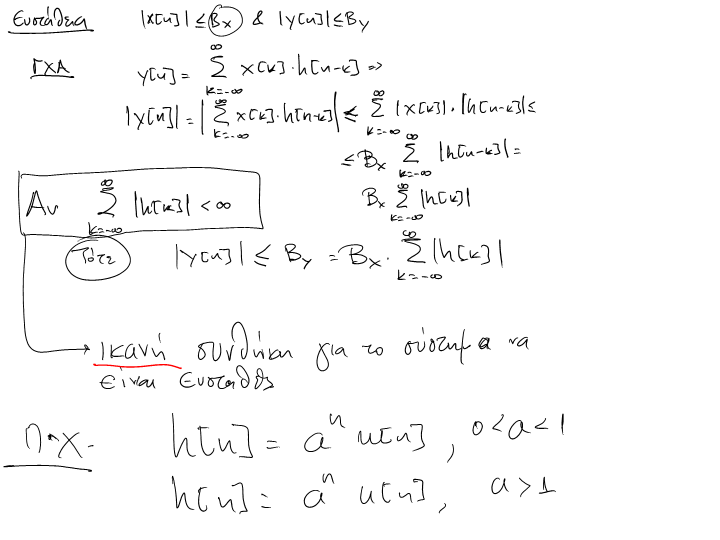 Ευστάθεια |x[n]| ≤ Bx & |y[n]| ≤ By
ΓΧΑ y[n] = ∞ Σ k=-∞ x[k]·h[n-k] =>
|y[n]| = | ∞ Σ k=-∞ x[k]·h[n-k] | ≤ ∞ Σ k=-∞ |x[k]|·|h[n-k]| ≤
≤ Bx ∞ Σ k=-∞ |h[n-k]| =
Bx ∞ Σ k=-∞ |h[k]|
Αν ∞ Σ k=-∞ |h[k]| < ∞
Τότε |y[n]| ≤ By = Bx · ∞ Σ k=-∞ |h[k]|
ικανή συνθήκη για το σύστημα να
είναι ευσταθές
Π.Χ. h[n] = a^n u[n], 0<a<1
h[n] = a^n u[n], a>1